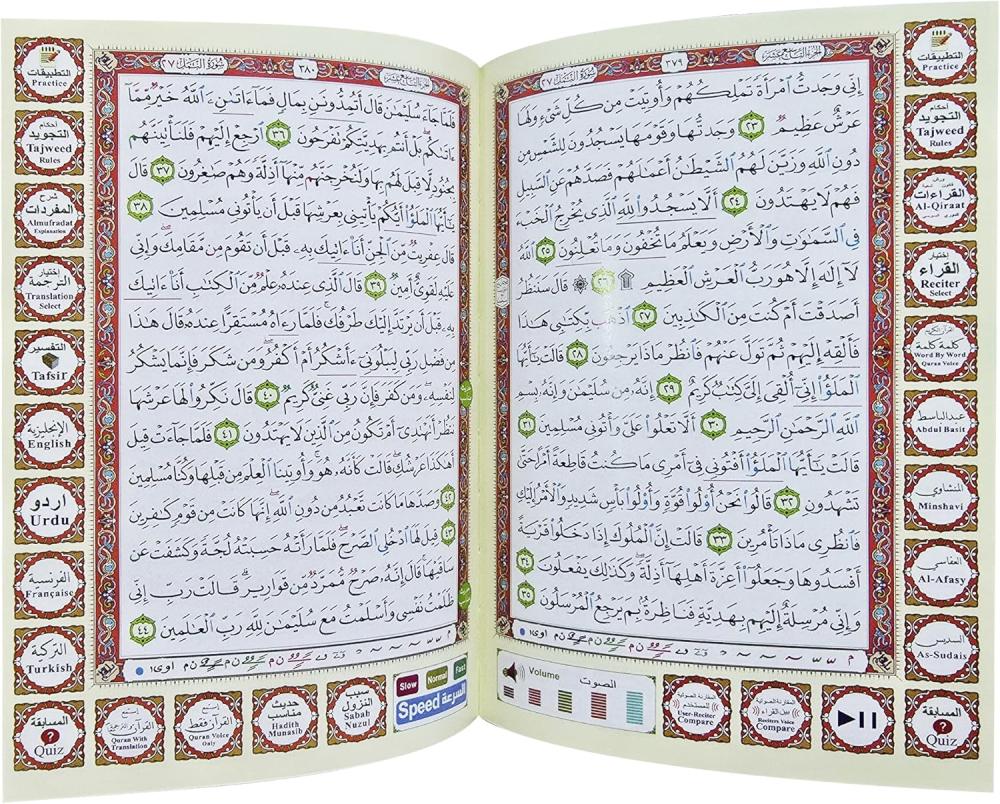 الجزء التاسع عشر
٣٧٩
سورة النمل ٢٧
إِنِّي وَجَدتُّ ٱمۡرَأَةٗ تَمۡلِكُهُمۡ وَأُوتِيَتۡ مِن كُلِّ شَيۡءٖ وَلَهَا
عَرۡشٌ عَظِيمٞ ٢٣ وَجَدتُّهَا وَقَوۡمَهَا يَسۡجُدُونَ لِلشَّمۡسِ مِن
دُونِ ٱللَّهِ وَزَيَّنَ لَهُمُ ٱلشَّيۡطَٰنُ أَعۡمَٰلَهُمۡ فَصَدَّهُمۡ عَنِ ٱلسَّبِيلِ
فَهُمۡ لَا يَهۡتَدُونَ ٢٤ أَلَّاۤ يَسۡجُدُواْ لِلَّهِ ٱلَّذِي يُخۡرِجُ ٱلۡخَبۡءَ
فِي ٱلسَّمَٰوَٰتِ وَٱلۡأَرۡضِ وَيَعۡلَمُ مَا تُخۡفُونَ وَمَا تُعۡلِنُونَ ٢٥ ٱللَّهُ
لَآ إِلَٰهَ إِلَّا هُوَ رَبُّ ٱلۡعَرۡشِ ٱلۡعَظِيمِ ۩ ٢٦ ۞ قَالَ سَنَنظُرُ
أَصَدَقۡتَ أَمۡ كُنتَ مِنَ ٱلۡكَٰذِبِينَ ٢٧ ٱذۡهَب بِّكِتَٰبِي هَٰذَا
فَأَلۡقِهۡ إِلَيۡهِمۡ ثُمَّ تَوَلَّ عَنۡهُمۡ فَٱنظُرۡ مَاذَا يَرۡجِعُونَ ٢٨ قَالَتۡ يَٰٓأَيُّهَا
ٱلۡمَلَؤُاْ إِنِّيٓ أُلۡقِيَ إِلَيَّ كِتَٰبٞ كَرِيمٌ ٢٩ إِنَّهُۥ مِن سُلَيۡمَٰنَ وَإِنَّهُۥ بِسۡمِ
ٱللَّهِ ٱلرَّحۡمَٰنِ ٱلرَّحِيمِ ٣٠ أَلَّا تَعۡلُواْ عَلَيَّ وَأۡتُونِي مُسۡلِمِينَ ٣١
قَالَتۡ يَٰٓأَيُّهَا ٱلۡمَلَؤُاْ أَفۡتُونِي فِيٓ أَمۡرِي مَا كُنتُ قَاطِعَةً أَمۡرًا حَتَّىٰ
تَشۡهَدُونِ ٣٢ قَالُواْ نَحۡنُ أُوْلُواْ قُوَّةٖ وَأُوْلُواْ بَأۡسٖ شَدِيدٖ وَٱلۡأَمۡرُ إِلَيۡكِ
فَٱنظُرِي مَاذَا تَأۡمُرِينَ ٣٣ قَالَتۡ إِنَّ ٱلۡمُلُوكَ إِذَا دَخَلُواْ قَرۡيَةً
أَفۡسَدُوهَا وَجَعَلُوٓاْ أَعِزَّةَ أَهۡلِهَآ أَذِلَّةٗۚ وَكَذَٰلِكَ يَفۡعَلُونَ ٣٤
وَإِنِّي مُرۡسِلَةٌ إِلَيۡهِم بِهَدِيَّةٖ فَنَاظِرَةُۢ بِمَ يَرۡجِعُ ٱلۡمُرۡسَلُونَ ٣٥
التطبيقات
Practice
أحكام
التجويد
Tajweed
Rules
القراءات
Al-Qiraat
إختيار
القراء
Reciter
Select
كلمة كلمة
Word By Word
Quran Voice
عبدالباسط
Abdul Basit
المنشاوي
Minshavi
العفاسي
Al-Afasy
السديس
As-Sudais
المسابقة
Quiz
Volume
الصوت
المقارنة الصوتية
للمستخدم
User-Reciter
Compare
المقارنة الصوتية
بين القراء
Reciters Voice
Compare
سورة النمل ٢٧
٣٨٠
الجزء التاسع عشر
فَلَمَّا جَآءَ سُلَيۡمَٰنَ قَالَ أَتُمِدُّونَنِ بِمَالٖ فَمَآ ءَاتَىٰنِۦَ ٱللَّهُ خَيۡرٞ مِّمَّآ
ءَاتَىٰكُم بَلۡ أَنتُم بِهَدِيَّتِكُمۡ تَفۡرَحُونَ ٣٦ ٱرۡجِعۡ إِلَيۡهِمۡ فَلَنَأۡتِيَنَّهُم
بِجُنُودٖ لَّا قِبَلَ لَهُم بِهَا وَلَنُخۡرِجَنَّهُم مِّنۡهَآ أَذِلَّةٗ وَهُمۡ صَٰغِرُونَ ٣٧ قَالَ
يَٰٓأَيُّهَا ٱلۡمَلَؤُاْ أَيُّكُمۡ يَأۡتِينِي بِعَرۡشِهَا قَبۡلَ أَن يَأۡتُونِي مُسۡلِمِينَ ٣٨
قَالَ عِفۡرِيتٞ مِّنَ ٱلۡجِنِّ أَنَا۠ ءَاتِيكَ بِهِۦ قَبۡلَ أَن تَقُومَ مِن مَّقَامِكَۖ وَإِنِّي
عَلَيۡهِ لَقَوِيٌّ أَمِينٞ ٣٩ قَالَ ٱلَّذِي عِندَهُۥ عِلۡمٞ مِّنَ ٱلۡكِتَٰبِ أَنَا۠ ءَاتِيكَ
بِهِۦ قَبۡلَ أَن يَرۡتَدَّ إِلَيۡكَ طَرۡفُكَۚ فَلَمَّا رَءَاهُ مُسۡتَقِرًّا عِندَهُۥ قَالَ هَٰذَا
مِن فَضۡلِ رَبِّي لِيَبۡلُوَنِيٓ ءَأَشۡكُرُ أَمۡ أَكۡفُرُۖ وَمَن شَكَرَ فَإِنَّمَا يَشۡكُرُ
لِنَفۡسِهِۦۖ وَمَن كَفَرَ فَإِنَّ رَبِّي غَنِيّٞ كَرِيمٞ ٤٠ قَالَ نَكِّرُواْ لَهَا عَرۡشَهَا
نَنظُرۡ أَتَهۡتَدِيٓ أَمۡ تَكُونُ مِنَ ٱلَّذِينَ لَا يَهۡتَدُونَ ٤١ فَلَمَّا جَآءَتۡ قِيلَ
أَهَٰكَذَا عَرۡشُكِۖ قَالَتۡ كَأَنَّهُۥ هُوَۚ وَأُوتِينَا ٱلۡعِلۡمَ مِن قَبۡلِهَا وَكُنَّا مُسۡلِمِينَ
٤٢ وَصَدَّهَا مَا كَانَت تَّعۡبُدُ مِن دُونِ ٱللَّهِۖ إِنَّهَا كَانَتۡ مِن قَوۡمٖ كَٰفِرِينَ
٤٣ قِيلَ لَهَا ٱدۡخُلِي ٱلصَّرۡحَۖ فَلَمَّا رَأَتۡهُ حَسِبَتۡهُ لُجَّةٗ وَكَشَفَتۡ عَن
سَاقَيۡهَاۚ قَالَ إِنَّهُۥ صَرۡحٞ مُّمَرَّدٞ مِّن قَوَارِيرَۗ قَالَتۡ رَبِّ إِنِّي
ظَلَمۡتُ نَفۡسِي وَأَسۡلَمۡتُ مَعَ سُلَيۡمَٰنَ لِلَّهِ رَبِّ ٱلۡعَٰلَمِينَ ٤٤
التطبيقات
Practice
أحكام
التجويد
Tajweed
Rules
شرح
المفردات
Almufradat
Explanation
إختيار
الترجمة
Translation
Select
التفسير
Tafsir
الإنجليزية
English
اردو
Urdu
الفرنسية
Française
التركية
Turkish
المسابقة
Quiz
Quran With
Translation
القرآن فقط
Quran Voice
Only
حديث
مناسب
Hadith
Munasib
سبب
النزول
Sabab
Nuzul
Slow
Normal
Fast
Speed السرعة